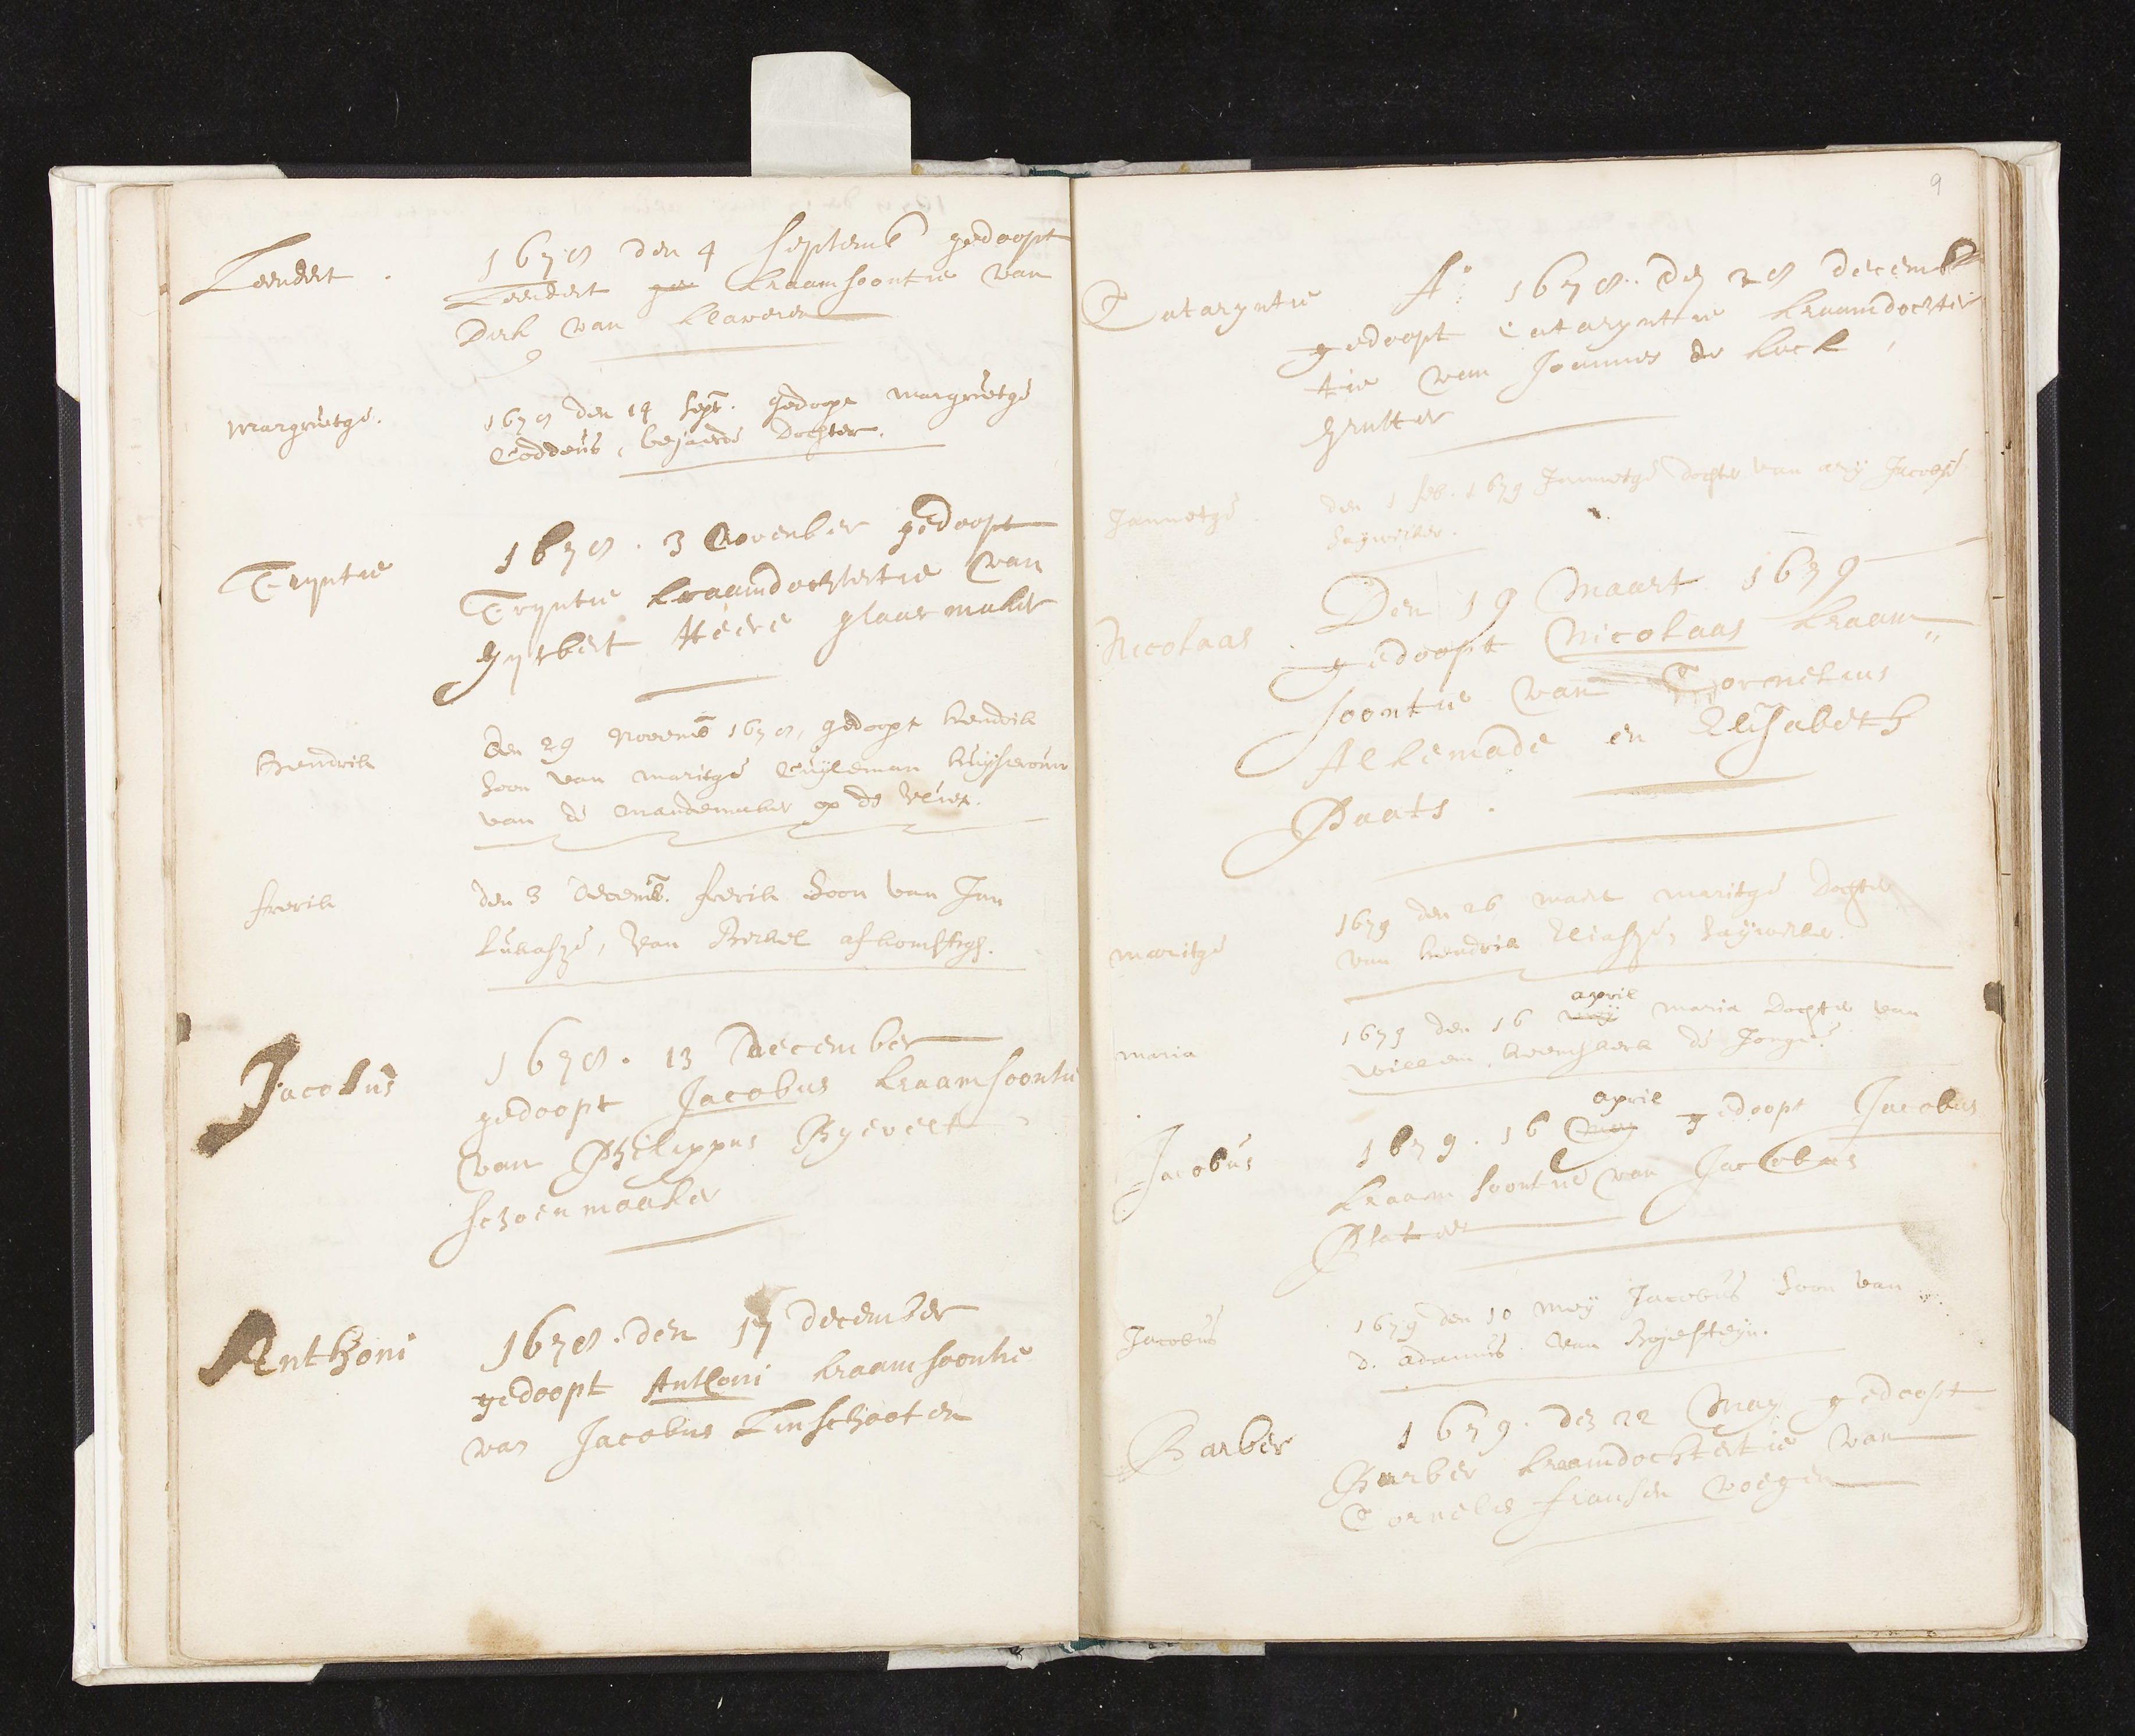 Leendert. 1678 den 4 Septemb gedoopt
Leendert kraamsoontie van
Dirk van Klaveren
Margrietge. 1678 den 14 Sept. gedoopt Margrietge
Coddeus, bejaerde Dochter.
Tryntie 1678. 3 November gedoopt
Tryntie kraamdochtertie van
Gysbert Heere glaasmaker
Hendrik den 29 Novemb 1678, gedoopt Hendrik
Soon van Maritge Cuijleman huijsvrouw
van de mandemaker op de Vliet.
frerik den 3 Decemb. frerik Soon van Jan
Lukasze, van Brekel afkomstigh.
Jacobus 1678. 13 December
gedoopt Jacobus kraamsoontie
van Philippus Byevelt
schoenmaaker
Anthoni 1678. den 17 december
gedoopt Anthoni kraamsoontie
van Jacobus Linschooten
9
Cataryntie A° 1678. den 28 decemb
gedoopt Cataryntie kraamdochter
tie van Joannes de Kock
grutter
Jannetge den 1 feb. 1679 Jannetge dochter van ary Jacobse
Saywerker.
Nicolaas Den 19 Maart 1679
gedoopt Nicolaas kraam„
soontie van Cornelius
Alkemade en Elisabeth
Paats.
Maritge 1679 den 26 Maert Maritge Dochter
van Hendrik Eliasze, Saywerker.
april
Maria 1679 den 16 may Maria Dochter van
Willem Heemskerk de Jonge.
april
Jacobus 1679. 16 May gedoopt Jacobus
kraamsoontie van Jacobus
Jacobus 1679 den 10 Mey Jacobus Soon van
d. adamus van Royesteyn.
Barber 1679. den 22 May gedoopt
Barber kraamdochtertie van
Cornelis fransen